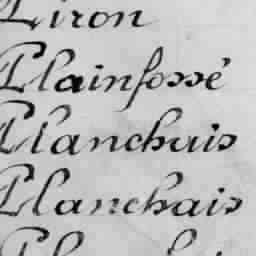 Piron
Plainfossé
Planchais
Planchais